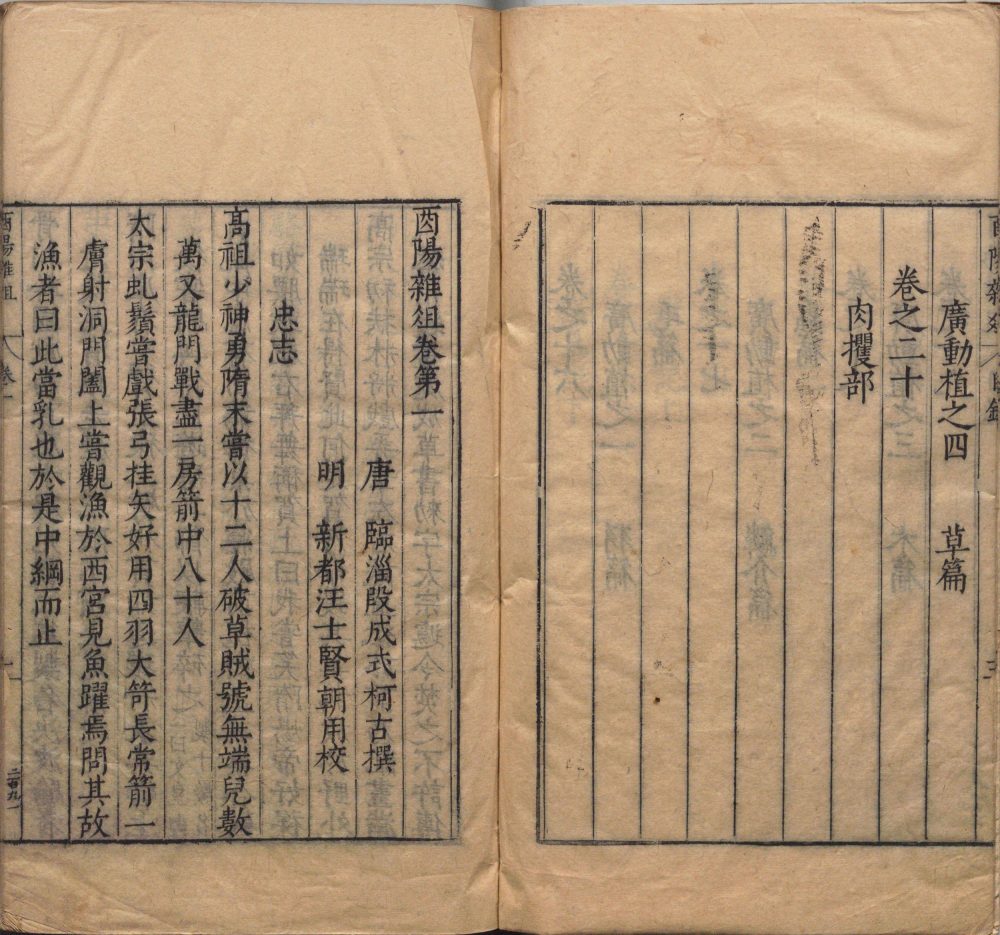 酉陽雜俎 目錄
廣動植之四 草篇
卷之二十
肉攫部
三
酉陽雜俎卷第一
唐 臨淄段成式柯古撰
明 新都汪士賢朝用校
忠志
高祖少神勇隋末嘗以十二人破草賊號無端兒數
萬又龍門戰盡一房箭中八十人
太宗虬鬚嘗戲張弓挂矢好用四羽大笴長常箭一
膚射洞門闔上嘗觀漁於西宮見魚躍焉問其故
漁者曰此當乳也於是中綱而止
酉陽雜俎 卷一
一